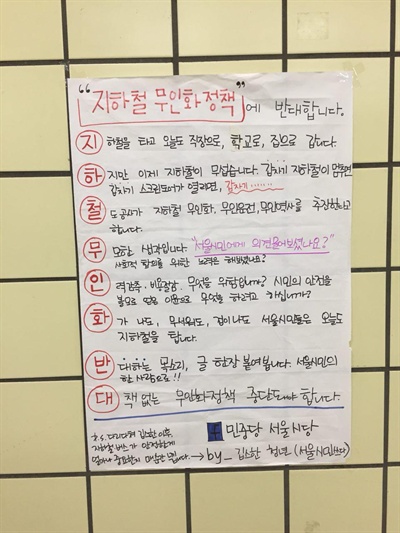 "지하철 무인화정책"에 반대합니다.
지 하철을 타고 오늘도 직장으로, 학교로, 집으로 갑니다.
하 지만 이제 지하철이 무섭습니다. 갑자기 지하철이 멈추면
갑자기 스크린도어가 열리면, 갑자기......
철 도공사가 지하철 무인화, 무인운전, 무인역사를 추진한다고
합니다.
무 모한 생각입니다. "서울시민에게 의견물어보셨나요?"
사회적 합의를 위한 노력은 해보셨나요?
인 력감축, 비용절감, 무엇을 위함입니까? 시민의 안전을
볼모로 이윤으로 무엇을 하려고 하십니까?
화 가 나도, 무서워도, 겁이나도 서울시민들은 오늘도
지하철을 탑니다.
반 대하는 목소리, 글 한장 붙여봅니다. 서울시민의
한 사람으로!!
대 책 없는 무인화정책 중단되어야 합니다.
민중당 서울시당
P.S. 다리다쳐 깁스한 이후,
지하철 버스가 안전한게
얼마나 중요한지 느낍니다. → by_ 깁스한 청년 (서울시민)